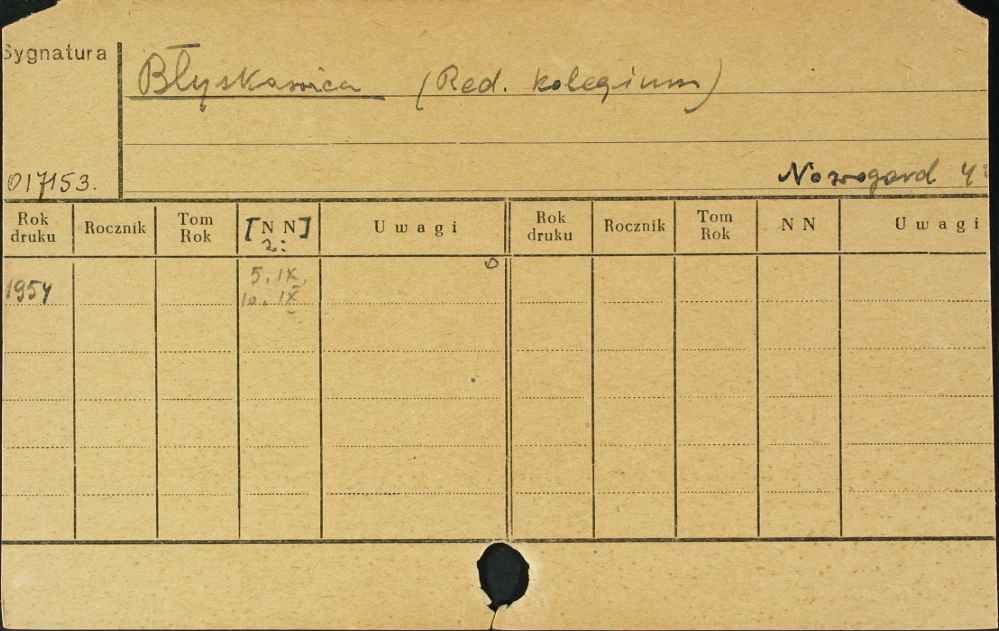 Sygnatura
Błyskawica (Red. kolegium)
017153.
Nowogard 4:
Rok druku Rocznik Tom Rok [NN] z: Uwagi Rok druku Rocznik Tom Rok NN Uwagi
1954 5.IX,
10.IX